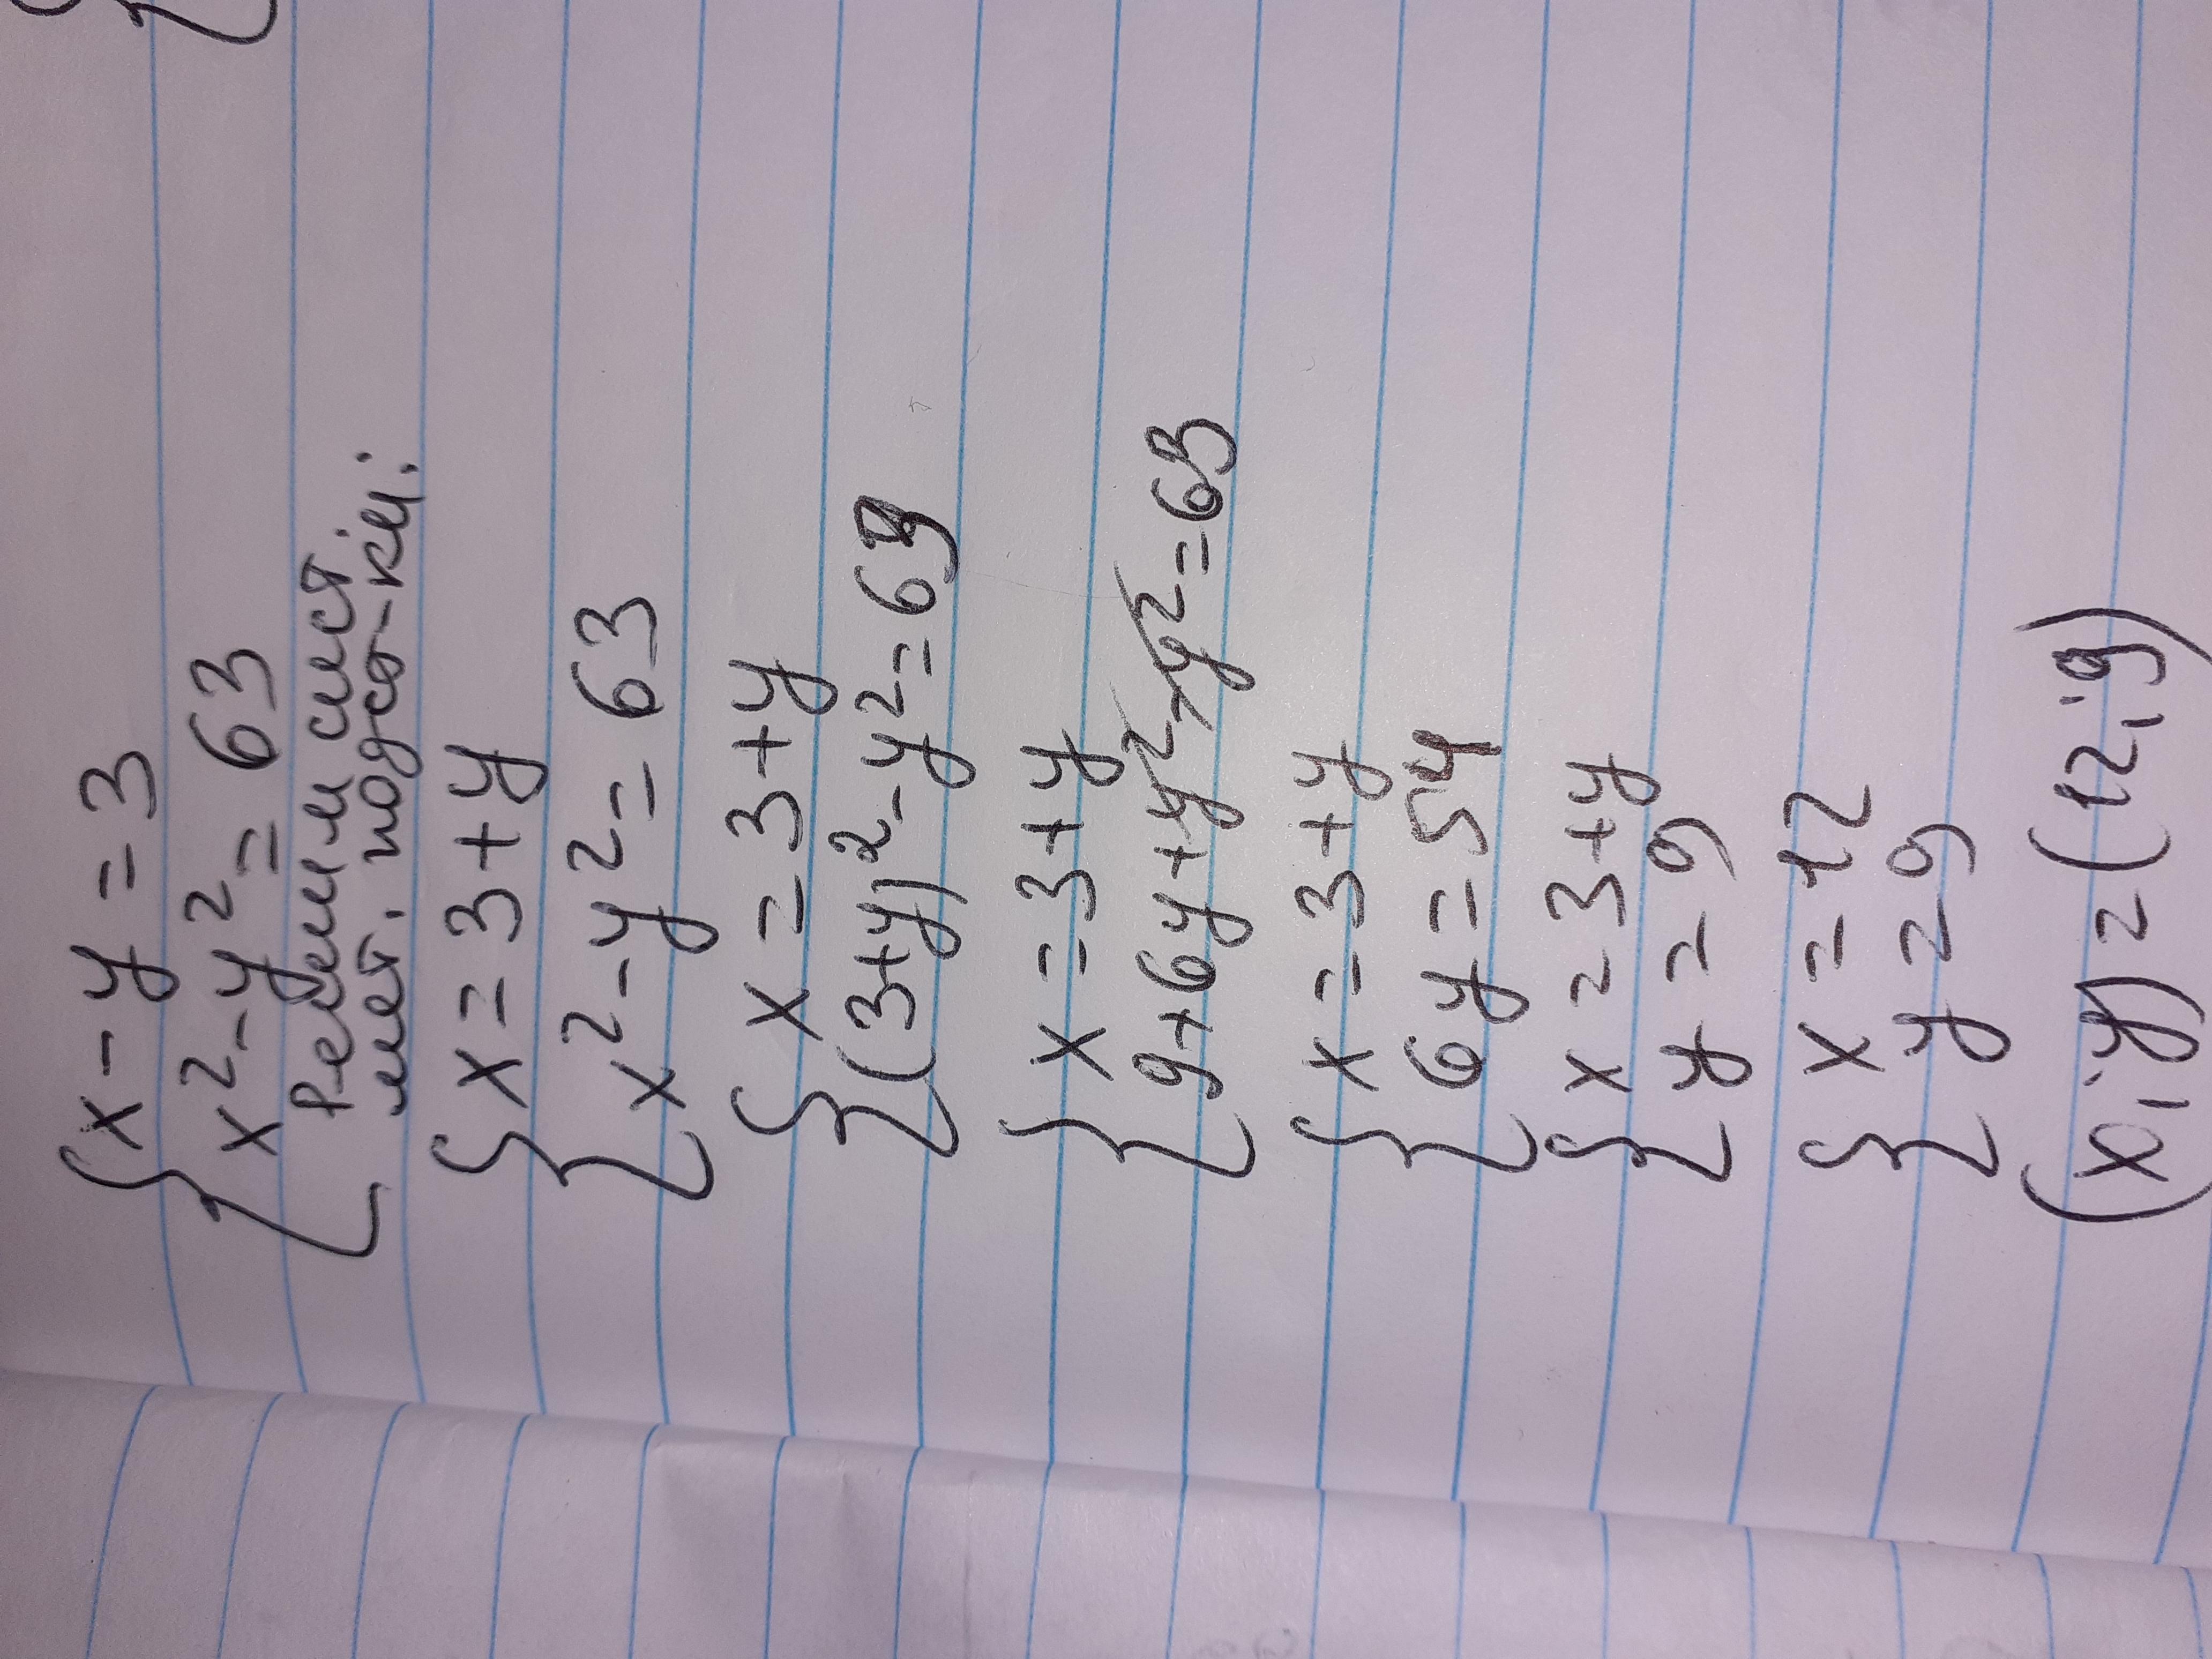 {x-y=3
{x²-y²=63
Решим сист.
мет. подст-ки:
{x=3+y
{x²-y²=63
{x=3+y
{(3+y)²-y²=63
{x=3+y
{9+6y+y²-y²=63
{x=3+y
{6y=54
{x=3+y
{y=9
{x=12
{y=9
(x;y)=(12;9)